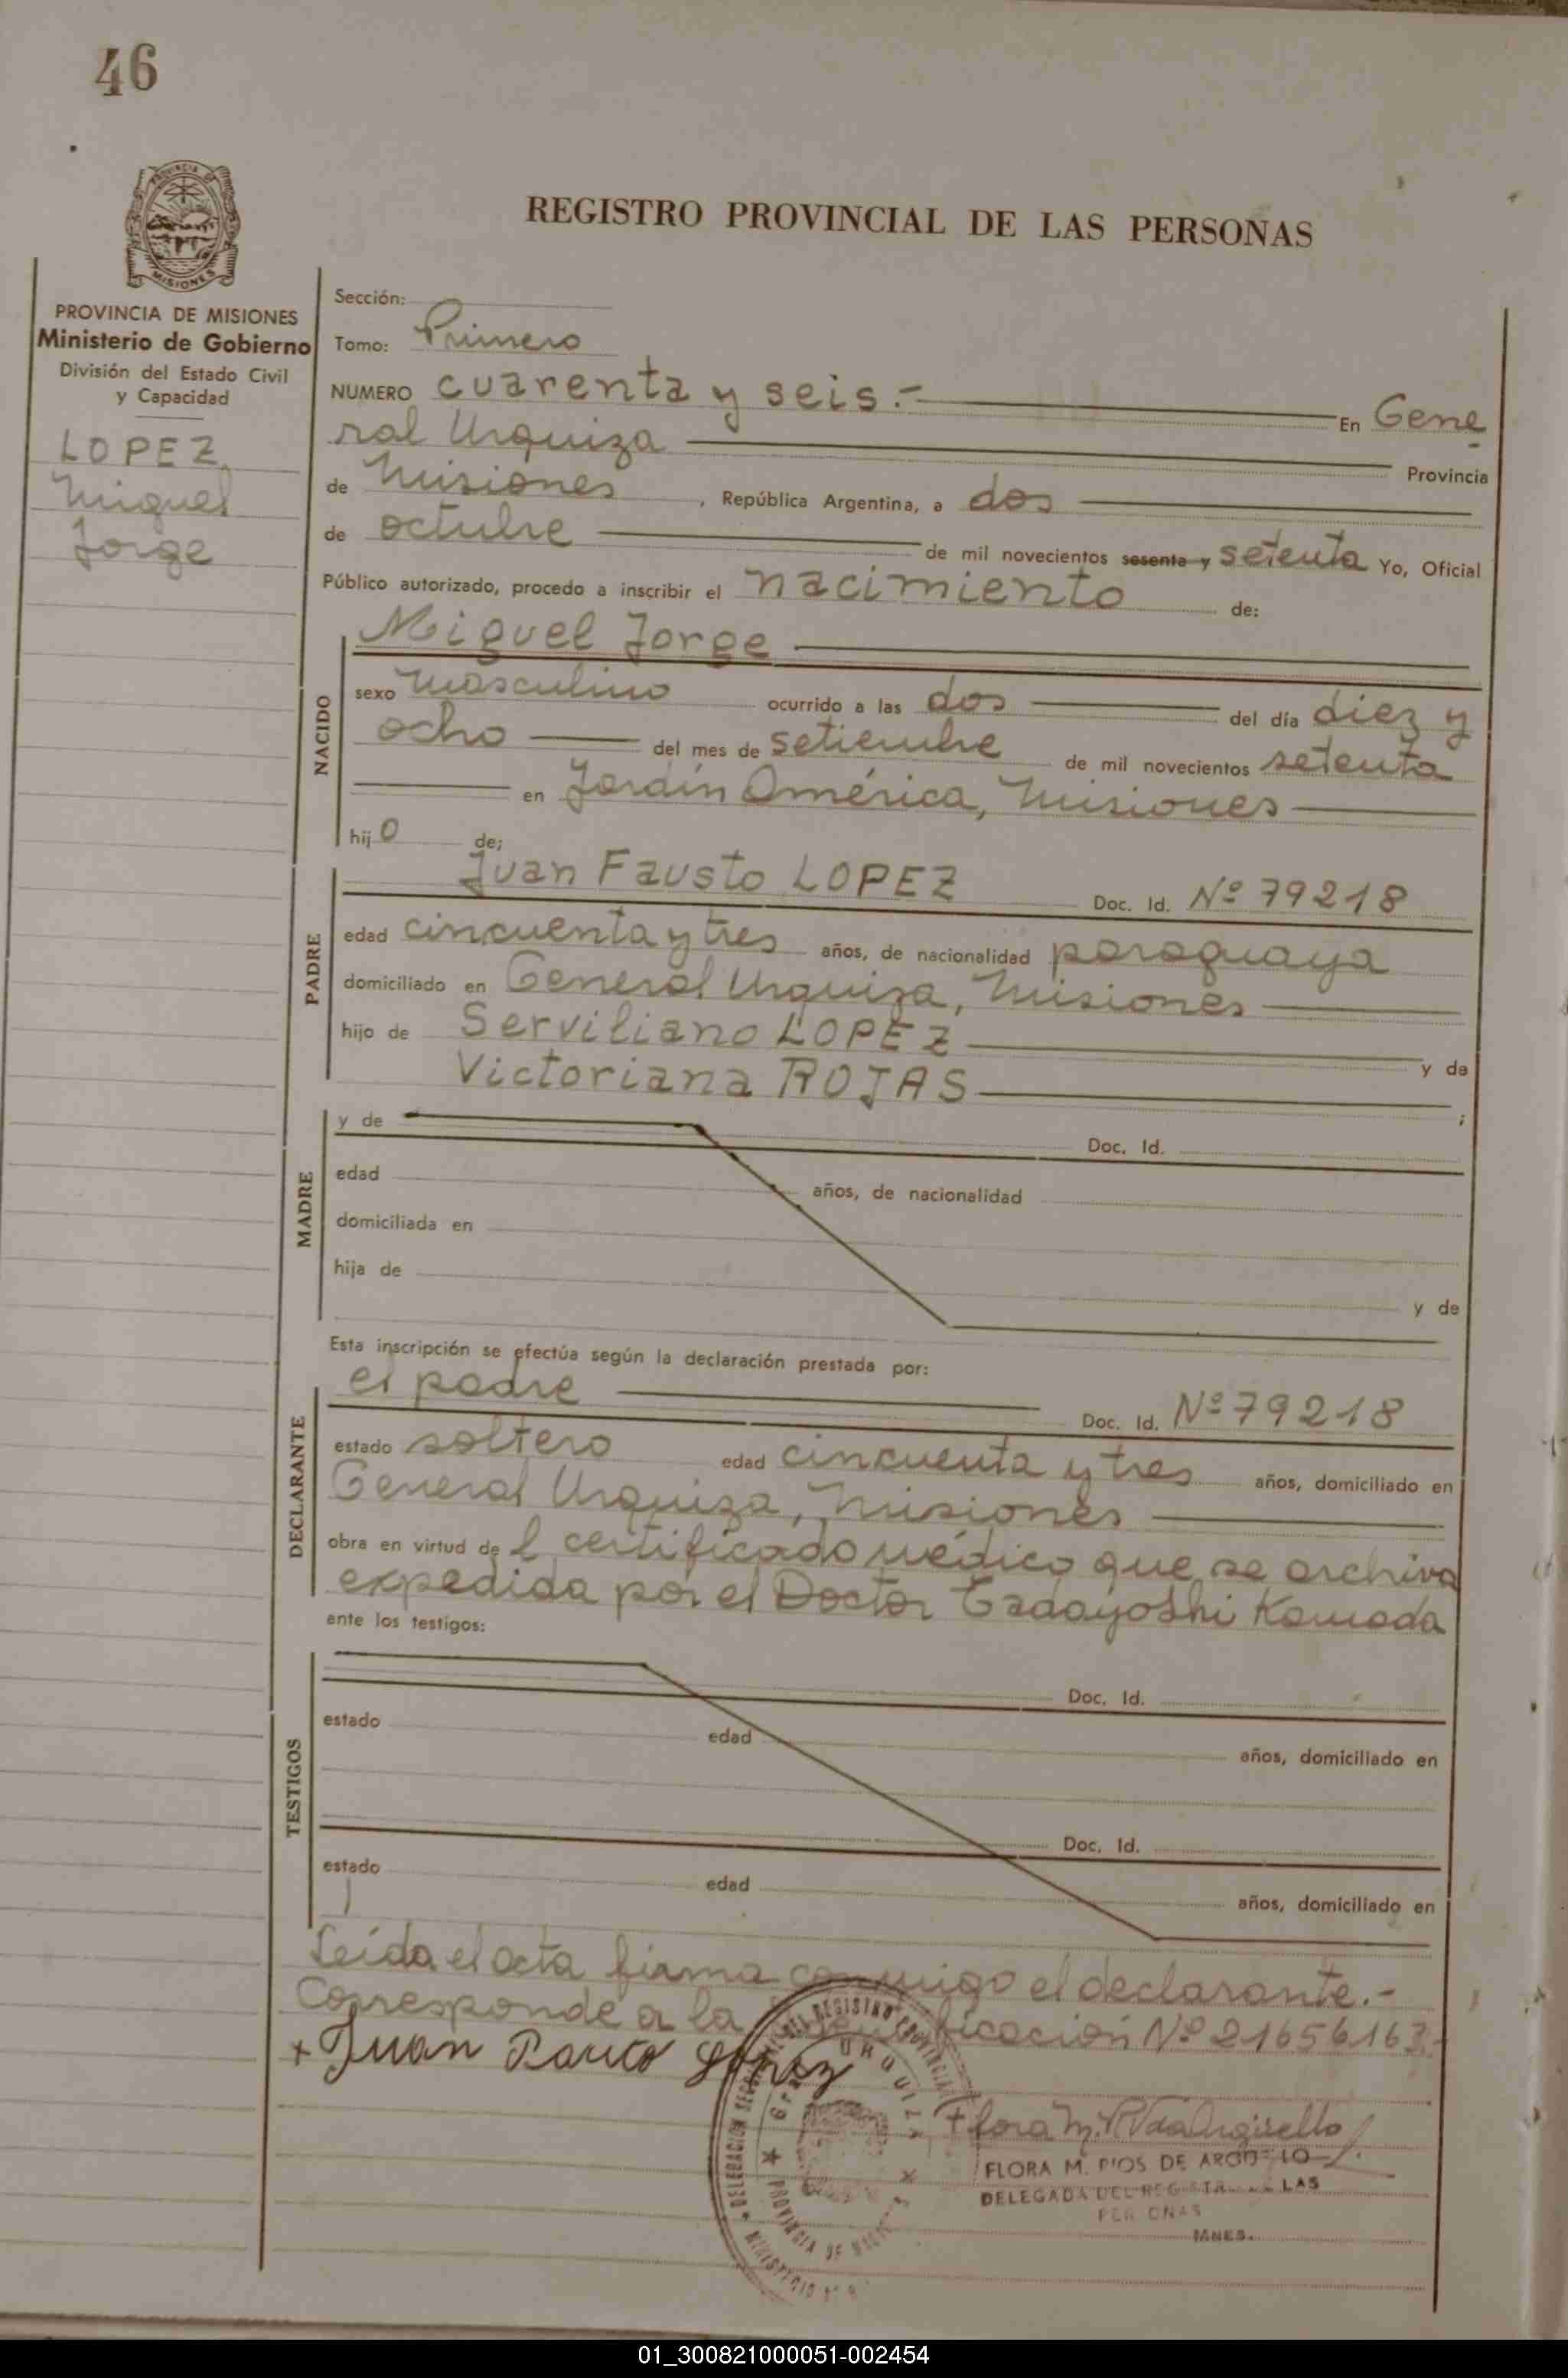 46
REGISTRO PROVINCIAL DE LAS PERSONAS
PROVINCIA DE MISIONES
Ministerio de Gobierno
División del Estado Civil
y Capacidad
LOPEZ,
Miguel
Jorge
Sección:
Tomo: Primero
NUMERO cuarenta y seis.- En Gene
ral Urquiza Provincia
de Misiones, República Argentina, a dos
de octubre de mil novecientos sesenta y setenta Yo, Oficial
Público autorizado, procedo a inscribir el nacimiento de:
NACIDO
Miguel Jorge
sexo masculino ocurrido a las dos del día diez y
ocho del mes de setiembre de mil novecientos setenta
en Jardín América, Misiones
hijo de;
PADRE
Juan Fausto LOPEZ Doc. Id. Nº 79218
edad cincuenta y tres años, de nacionalidad paraguaya
domiciliado en General Urquiza, Misiones
hijo de Serviliano LOPEZ y de
Victoriana ROJAS ;
MADRE
y de Doc. Id.
edad años, de nacionalidad
domiciliada en
hija de
y de
Esta inscripción se efectúa según la declaración prestada por:
DECLARANTE
el padre Doc. Id. Nº 79218
estado soltero edad cincuenta y tres años, domiciliado en
General Urquiza, Misiones
obra en virtud del certificado médico que se archiva
expedida por el Doctor Tadayoshi Kamada
ante los testigos:
TESTIGOS
Doc. Id.
estado edad años, domiciliado en
Doc. Id.
estado edad años, domiciliado en
Leída el acta firma conmigo el declarante.-
Corresponde a la Nº 21656163.-
+ Juan López
FLORA M. DE
DELEGADA DEL LAS
MNES.
01_300821000051-002454